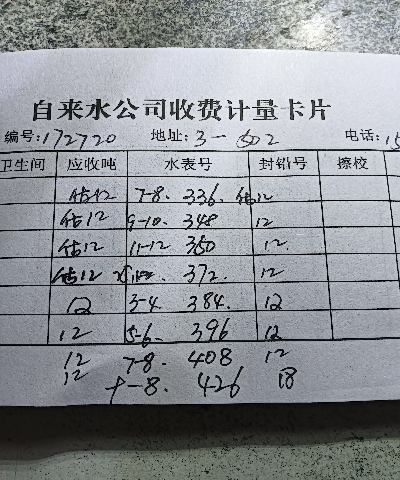 自来水公司收费计量卡片
编号:172720 地址: 3-602 电话: 15
卫生间 应收吨 水表号 封铅号 擦校
估12 7-8. 336. 估12
估12 9-10. 348 12
估12 11-12 350 12.
估12 372. 12
12 3-4. 384. 12
12 5-6. 396 12
12 7-8. 408 12
12 十-8. 426 18